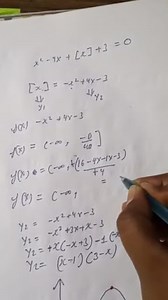 x² - 4x + [x] + 3 = 0
[x] = -x² + 4x - 3
↓ y₁ ↓ y₂
-x² + 4x - 3
y(x) = (-∞, -D/4a]
y(x) = (-∞, -(16 - 4x-1x-3)/+4
y(x) = (-∞, =
y₂ = -x² + 4x - 3
y₂ = -x² + 3x + x - 3
y₂ = +x(-x+3) -1(-x+
y₂ = (x-1)(3-x)